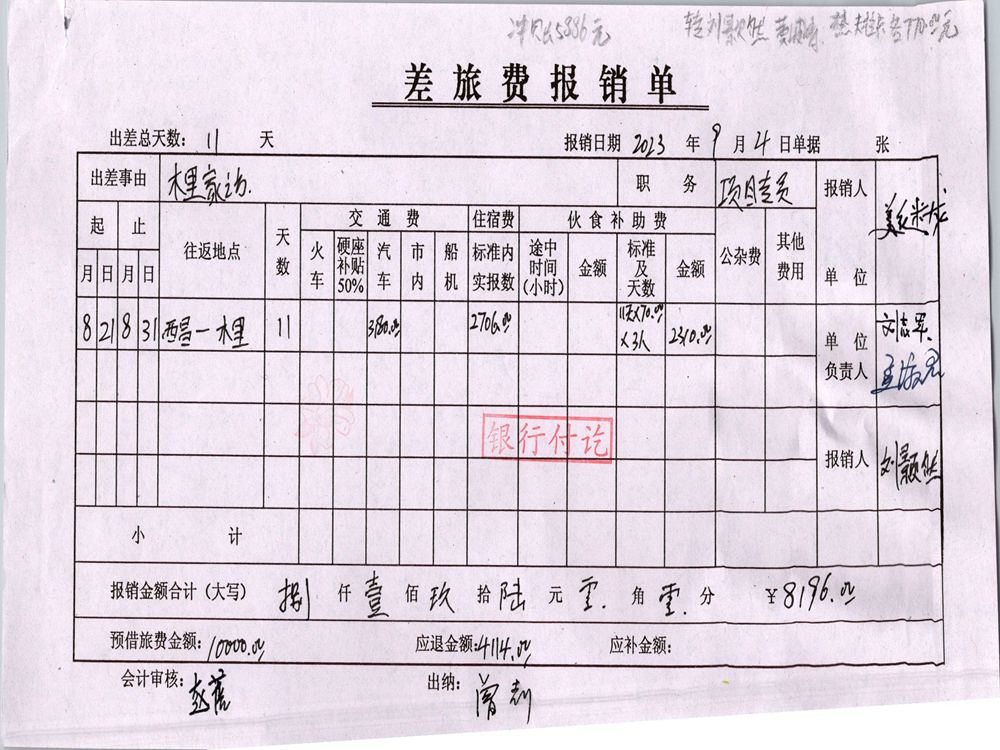 冲贝出5886元 转刘颢然
差旅费报销单
出差总天数: 11 天 报销日期 2023 年 9 月 4 日单据 张
出差事由 木里家访. 职务 项目专员 报销人
起 止 往返地点 天数 交通费 住宿费 伙食补助费 公杂费 其他费用
月 日 月 日 火车 硬座补贴50% 汽车 市内 船机 标准内实报数 途中时间(小时) 金额 标准及天数 金额 单位
8 21 8 31 西昌—木里 11 3180.00 2706.00 11天×70.00×3人 2310.00 单位负责人 刘志军
银行付讫
报销人 刘颢然
小计
报销金额合计(大写) 捌 仟 壹 佰 玖 拾 陆 元 零. 角 零. 分 ¥8196.00
预借旅费金额: 10000.00 应退金额: 4114.00 应补金额:
会计审核: 出纳: 曾志